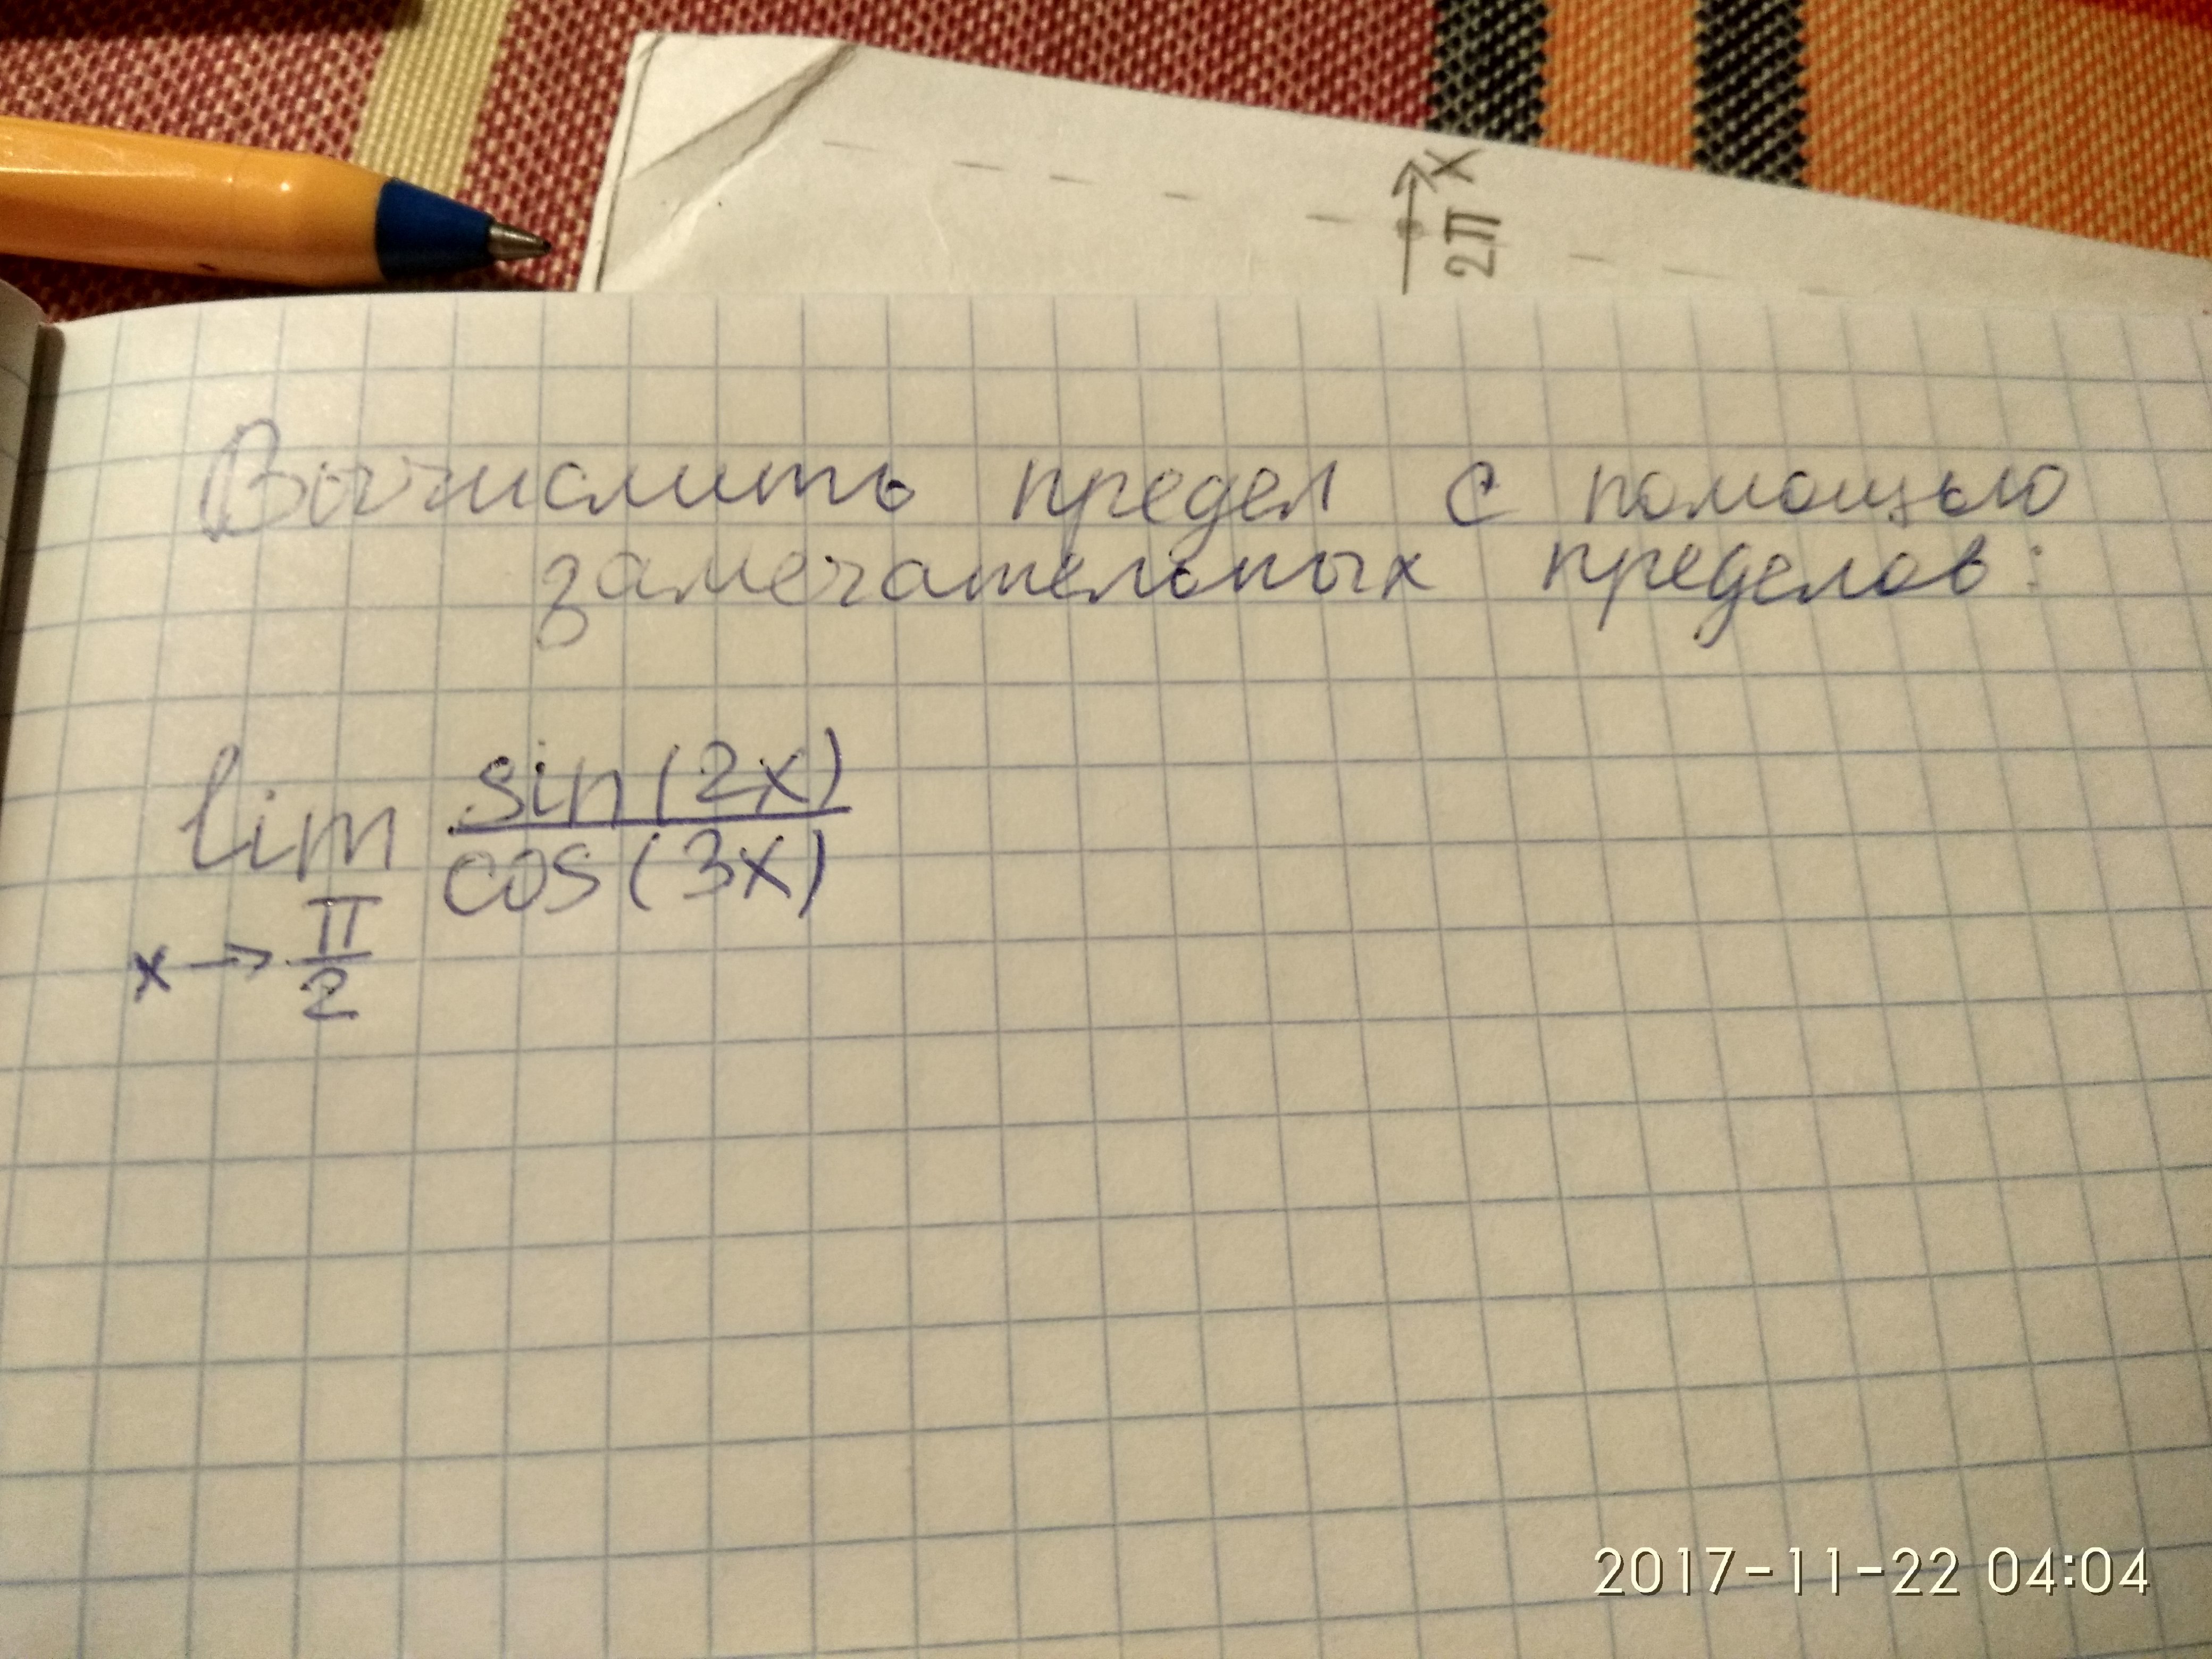 x
2π
Вычислить предел с помощью
замечательных пределов:
lim sin(2x)
cos(3x)
x→π/2
2017-11-22 04:04